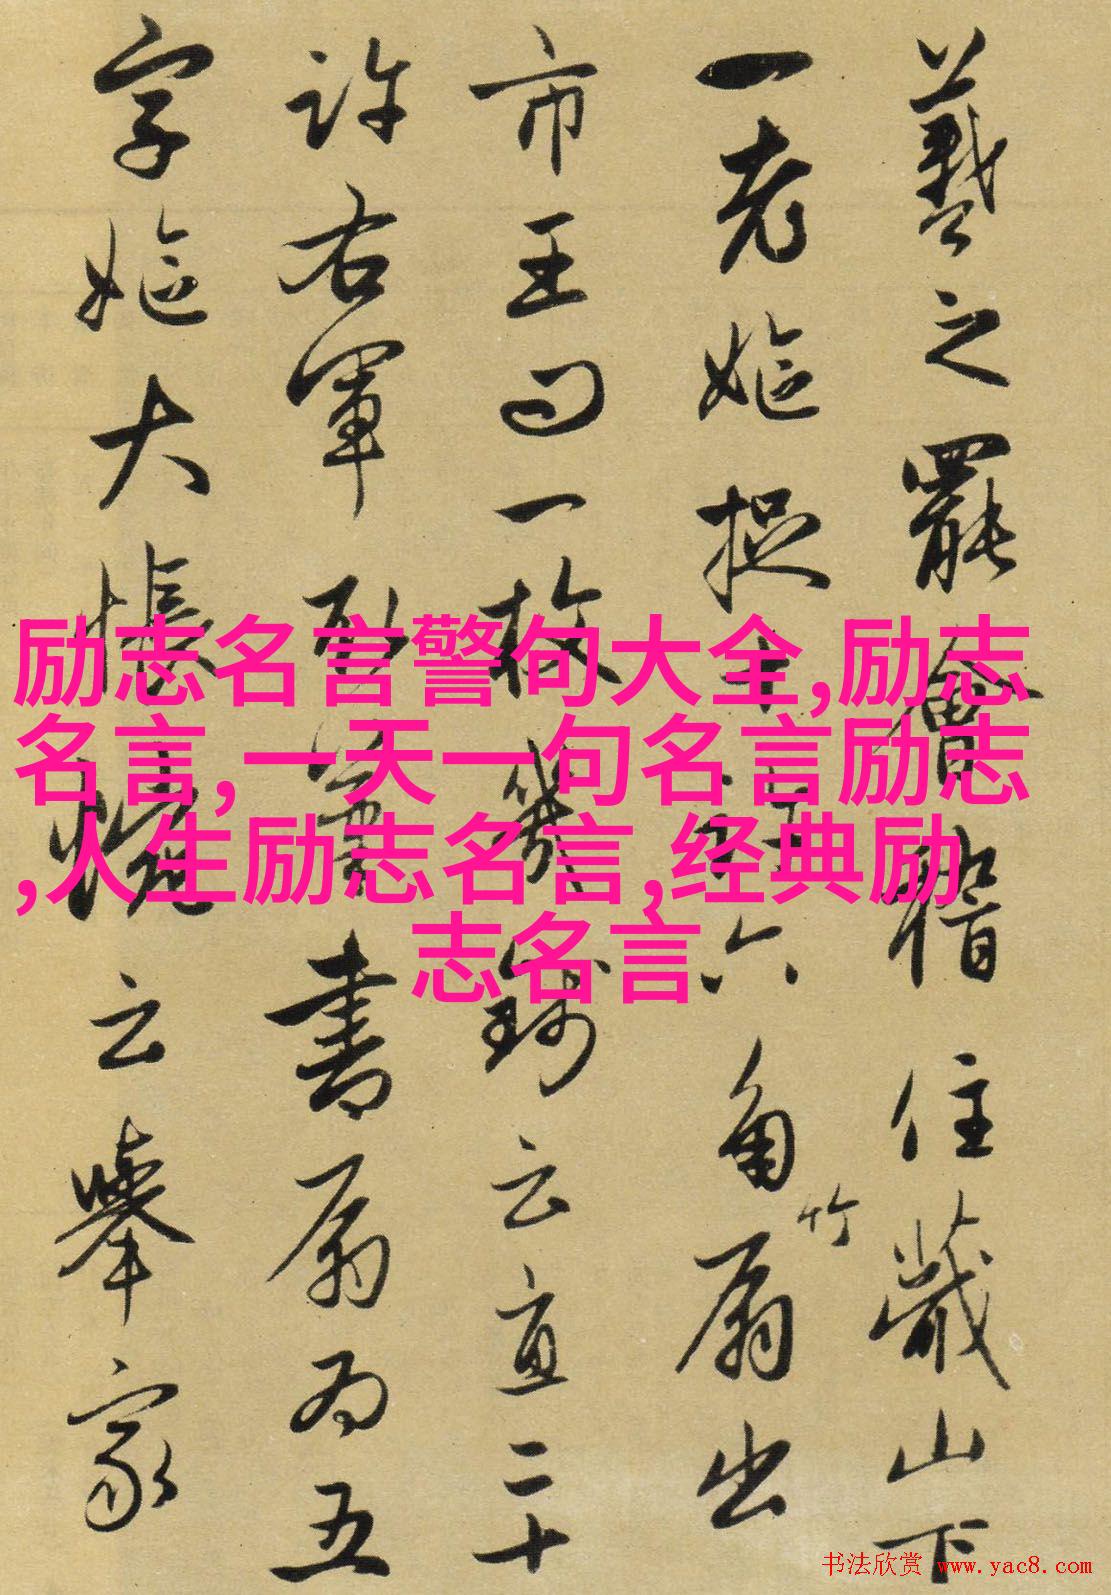 羲之罷會稽住蕺山下
一老嫗捉十許六角竹扇出
市王曰一枚幾錢云直二十
許右軍取筆書扇為五
字嫗大悵惋云舉家
励志名言警句大全,励志
名言,一天一句名言励志
,人生励志名言,经典励
志名言
书法欣赏 www.yac8.com